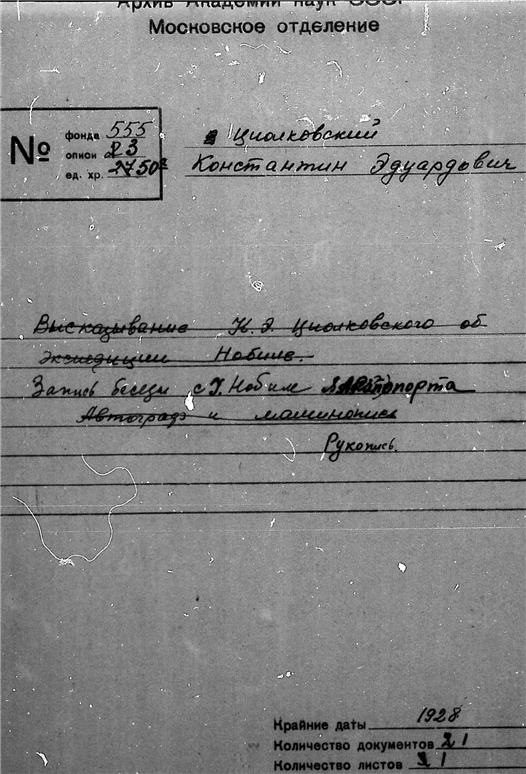 Архив Академии наук СССР
Московское отделение
№
фонда 555
описи 23
ед. хр. 2750
Циолковский
Константин Эдуардович
Высказывание К.Э. Циолковского об
экспедиции Нобиле.
Запись беседы с У. Нобиле
Автограф и машинопись
Рукопись.
Крайние даты 1928
Количество документов 1
Количество листов 1